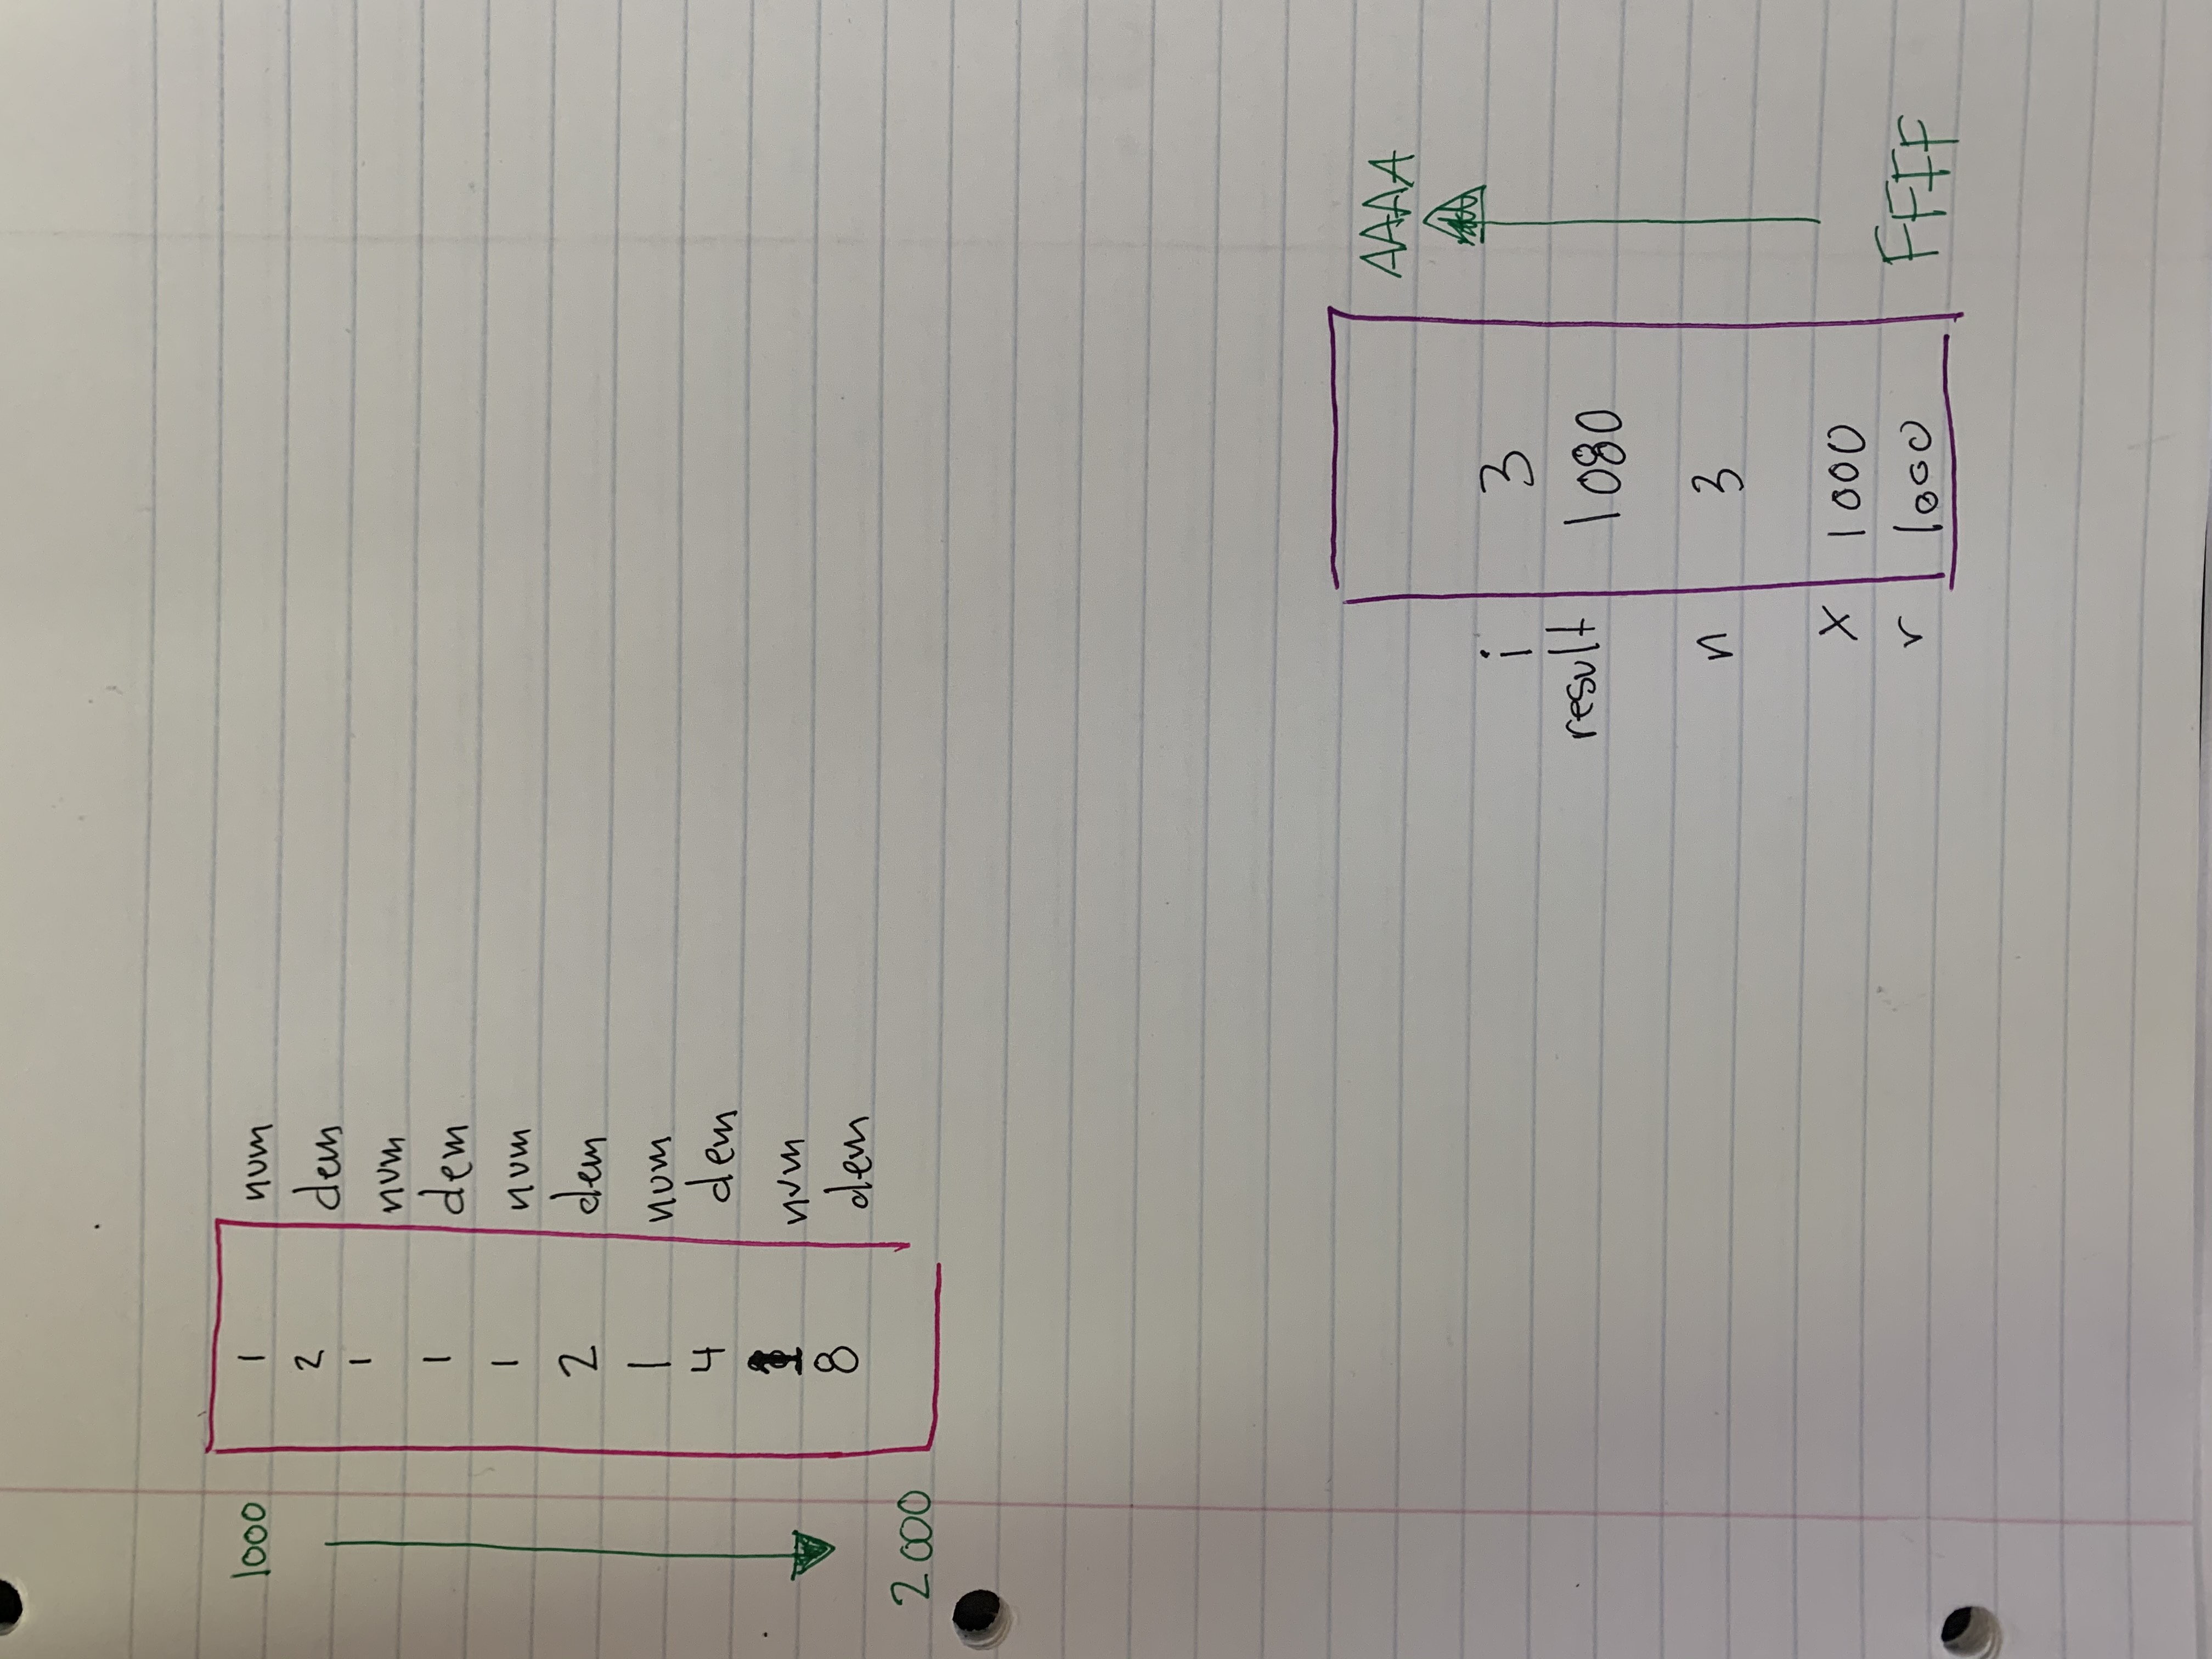 1000 1 num
2 dem
1 num
1 dem
1 num
2 dem
1 num
4 dem
1 num
8 dem
2000
AAAA
i 3
result 1080
n 3
x 1000
r 1000 FFFF